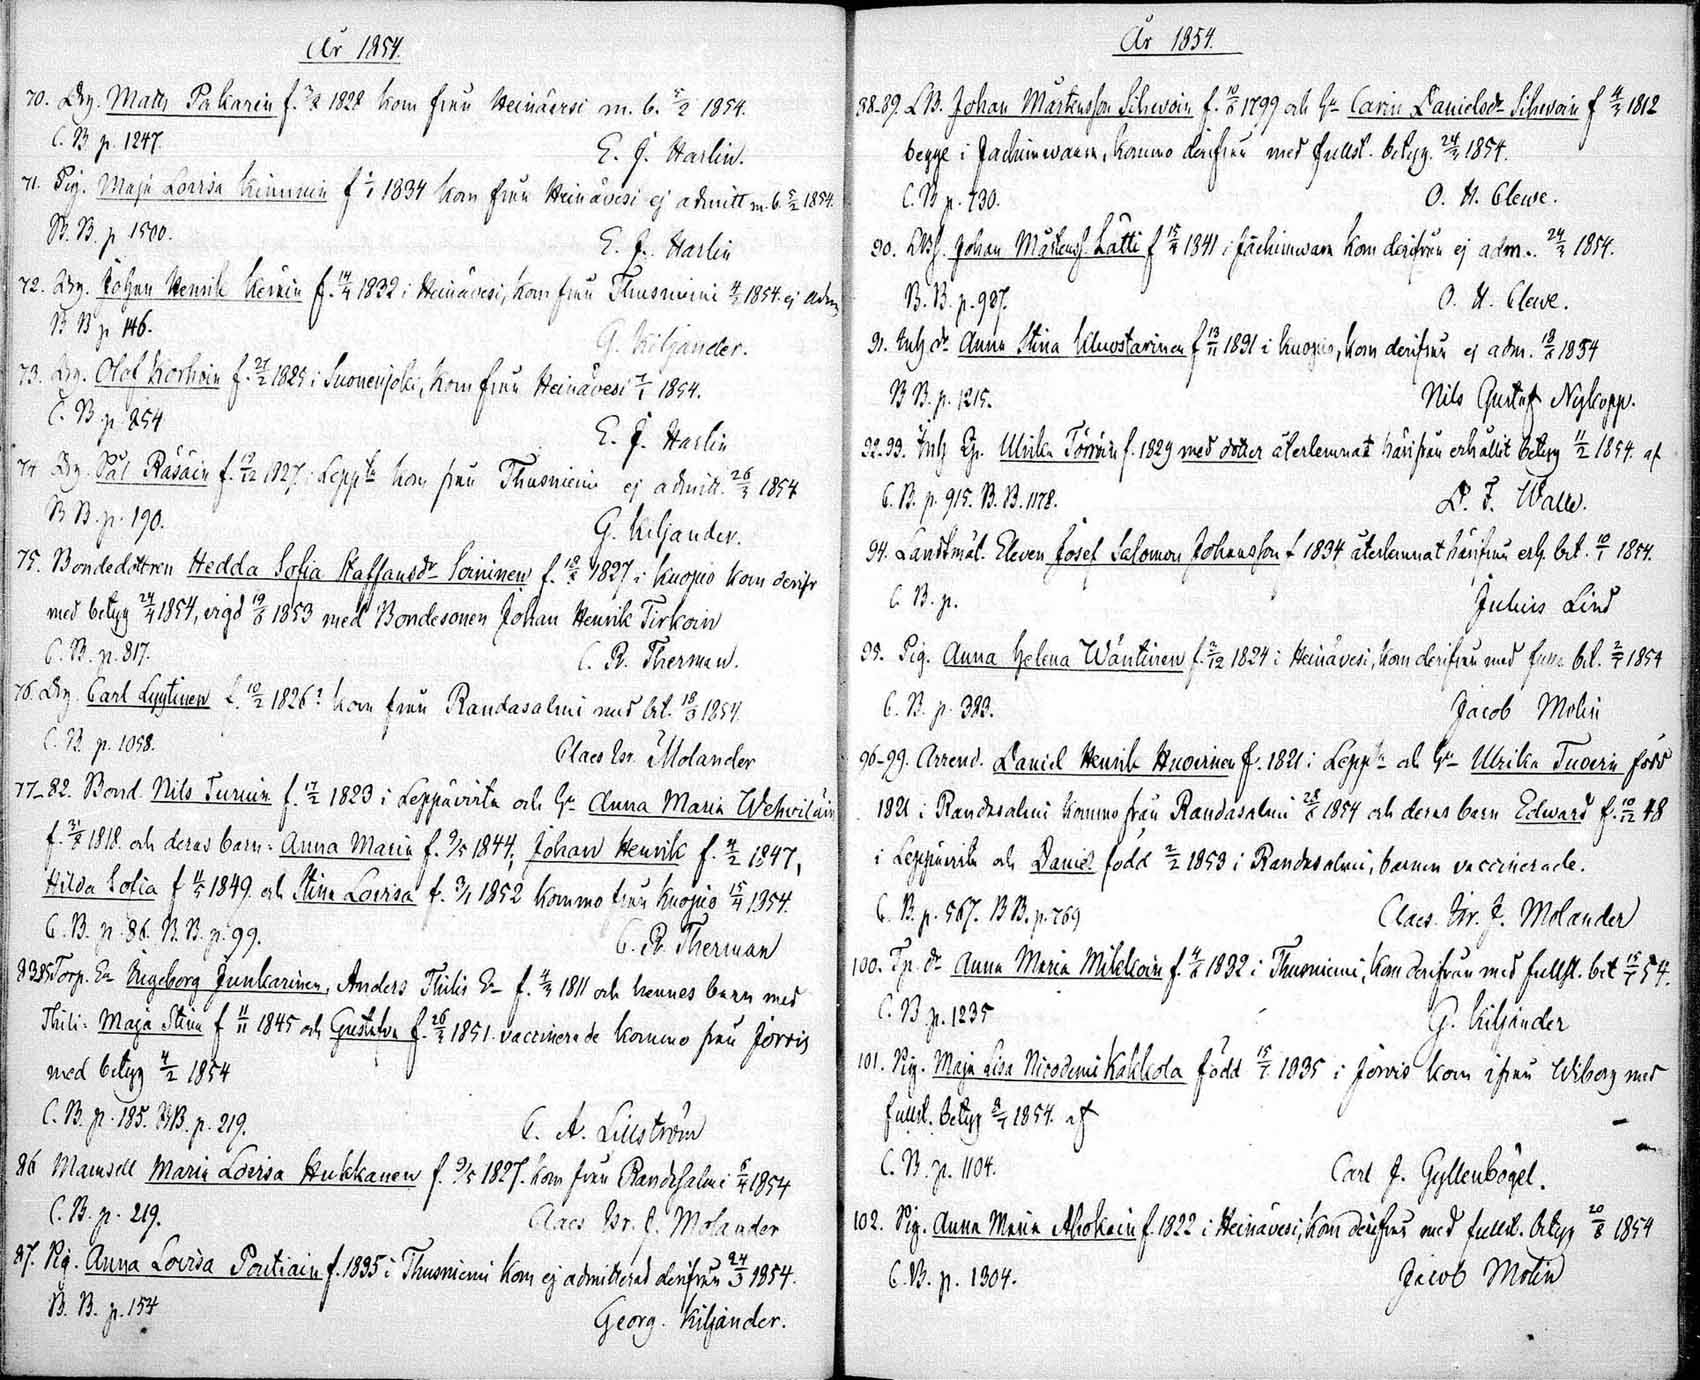 År 1854.
70. Drg. Matts Pakarin f. 7/8 1828 kom från Heinävesi m. b. 5/2 1854.
C. B. p. 1247.
E. J. Harlin.
71. Pig. Maja Lovisa Kinnunin f 1834 kom från Heinävesi ej admitt m. b. 5/2 1854.
B. B. p 1500.
E. J. Harlin
72. Drg. Johan Henrik f. 14/4 1832 i Heinävesi, kom från Thusniemi 4/3 1854. ej adm
B B p 146.
G. Kiljander.
73. Drg. Olof Korhoin f. 27/2 1825 i Suonenjoki, kom från Heinävesi 7/1 1854.
C. B. p. 254
E. J. Harlin
74 Drg. Pål Räsäin f. 12/12 1827, i Lepp:ta kom från Thusniemi ej admitt. 26/3 1854
B B. p. 190.
G. Kiljander.
75. Bondedottren Hedda Sofia Staffansdr Soininen f. 18/8 1827 i Kuopio kom derifr
med betyg 24/4 1854, vigd 19/6 1853 med Bondesonen Johan Henrik Tirkoin
C. B. p. 817.
C. R. Therman.
76. Drg. Carl Lyytinen f. 10/2 1826? kom från Randasalmi med bet. 18/3 1854.
C. B. p. 1058.
Claes Wr. J Molander
77-82. Bond. Nils Turuin f. 17/2 1823 i Leppävirta och Hu Anna Maria Wehviläin
f. 31/8 1818. och deras barn: Anna Maria f. 9/5 1844, Johan Henrik f. 4/2 1847,
Hilda Sofia f 11/5 1849. och Stina Lovisa f. 3/1 1852 kommo från Kuopio 15/4 1854.
C. B. p. 86. B. B. p. 99.
C. R. Therman
83-85 Torp. E- Ingeborg Junkarinen, Anders Thilis E- f. 4/3 1811 och hennes barn med
Thili: Maja Stina f 11/11 1845 och Gustafva f. 26/2 1851. vaccinerade kommo från Jorvis
med betyg 4/2 1854
C. B. p. 185. BB. p. 219.
C. A. Lillström
86 Mamsell Maria Lovisa Hukkanen f. 9/5 1827. kom från Randasalmi 8/4 1854
C. B. p. 219.
Claes Wr. J. Molander
87. Pig. Anna Lovisa Poutiain f. 1835 i Thusniemi kom ej admitterad derifrån 24/3 1854.
B. B. p. 154
Georg. Kiljander.
År 1854.
88-89. LB. Johan Mårtensson Sihvoin f. 10/8 1799 och Hu Carin Danielsdr Sihvoin f 4/3 1812
begge i Jachimwaara, kommo derifrån med fullst. betyg. 24/3 1854.
C. B p. 730.
O. H. Cleve.
90. LBs. Johan Mårtenss. Lätti f 15/4 1841 i Jachimwara kom derifrån ej adm.. 24/3 1854.
B. B. p. 987.
O. H. Cleve.
91. Inh dr Anna Stina Kluvstarinen f 13/11 1831 i Kuopio, kom derifrån ej adm. 18/8 1854
B B. p. 1215.
Nils Gustaf Nykopp.
92-93. Inh Pi. Ulrika Törröin f. 1829 med dotter återlemnat härifrån erhållit betyg 11/2 1854. af
C. B. p. 915. B. B. 1178.
D. F. Walle.
94. Landtmät. Eleven Josef Salomon Johansson f 1834 återlemnat härifrån erh. bet. 10/1 1854.
C. B. p.
Julius Lind
95. Pig. Anna Helena Wäntinen f. 2/12 1824 i Heinävesi, kom derifrån med full. bet. 2/4 1854
C. B. p. 383.
Jacob Molin
96-99. Arrend. Daniel Henrik Huverinen f. 1821 i Lepp:ta och Hu Ulrika Tuverin född
1821 i Randasalmi kommo från Randasalmi 28/8 1854 och deras barn Edward f. 10/12 48
i Leppävirta och Daniel född 2/2 1853 i Randasalmi, barnen vaccinerade.
C. B. p. 567. B B. p. 769
Claes. Wr. J. Molander
100. Tp. dr Anna Maria Mikkoin f. 4/8 1832 i Thusniemi, kom derifrån med fullst. bet 15/4 54.
C. B. p. 1235
G. Kiljander
101. Pig. Maja Lisa Nicodemi Kakkola född 15/7 1835 i Jorvis kom ifrån Wiborg med
fullst. Betyg 8/4 1854. af
C. B. p. 1104.
Carl J. Gyllenbögel.
102. Pig. Anna Maria Ahokain f. 1822 i Heinävesi, kom derifrån med fullst. betyg 20/8 1854
C. B. p. 1304.
Jacob Molin